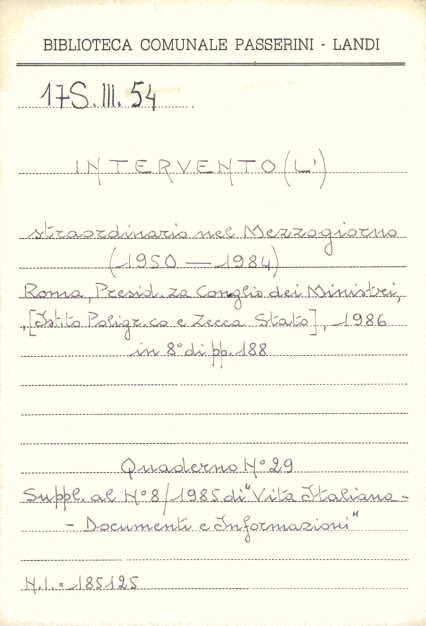 BIBLIOTECA COMUNALE PASSERINI - LANDI
17S. III. 54
INTERVENTO (L')
straordinario nel Mezzogiorno
(1950 — 1984)
Roma, Presid.za Conglio dei Ministri,
[Istito Poligr.co e Zecca Stato], 1986
in 8° di pp. 188
Quaderno N° 29
Suppl. al N° 8/1985 di "Vita Italiana -
- Documenti e Informazioni"
N.I. = 185125